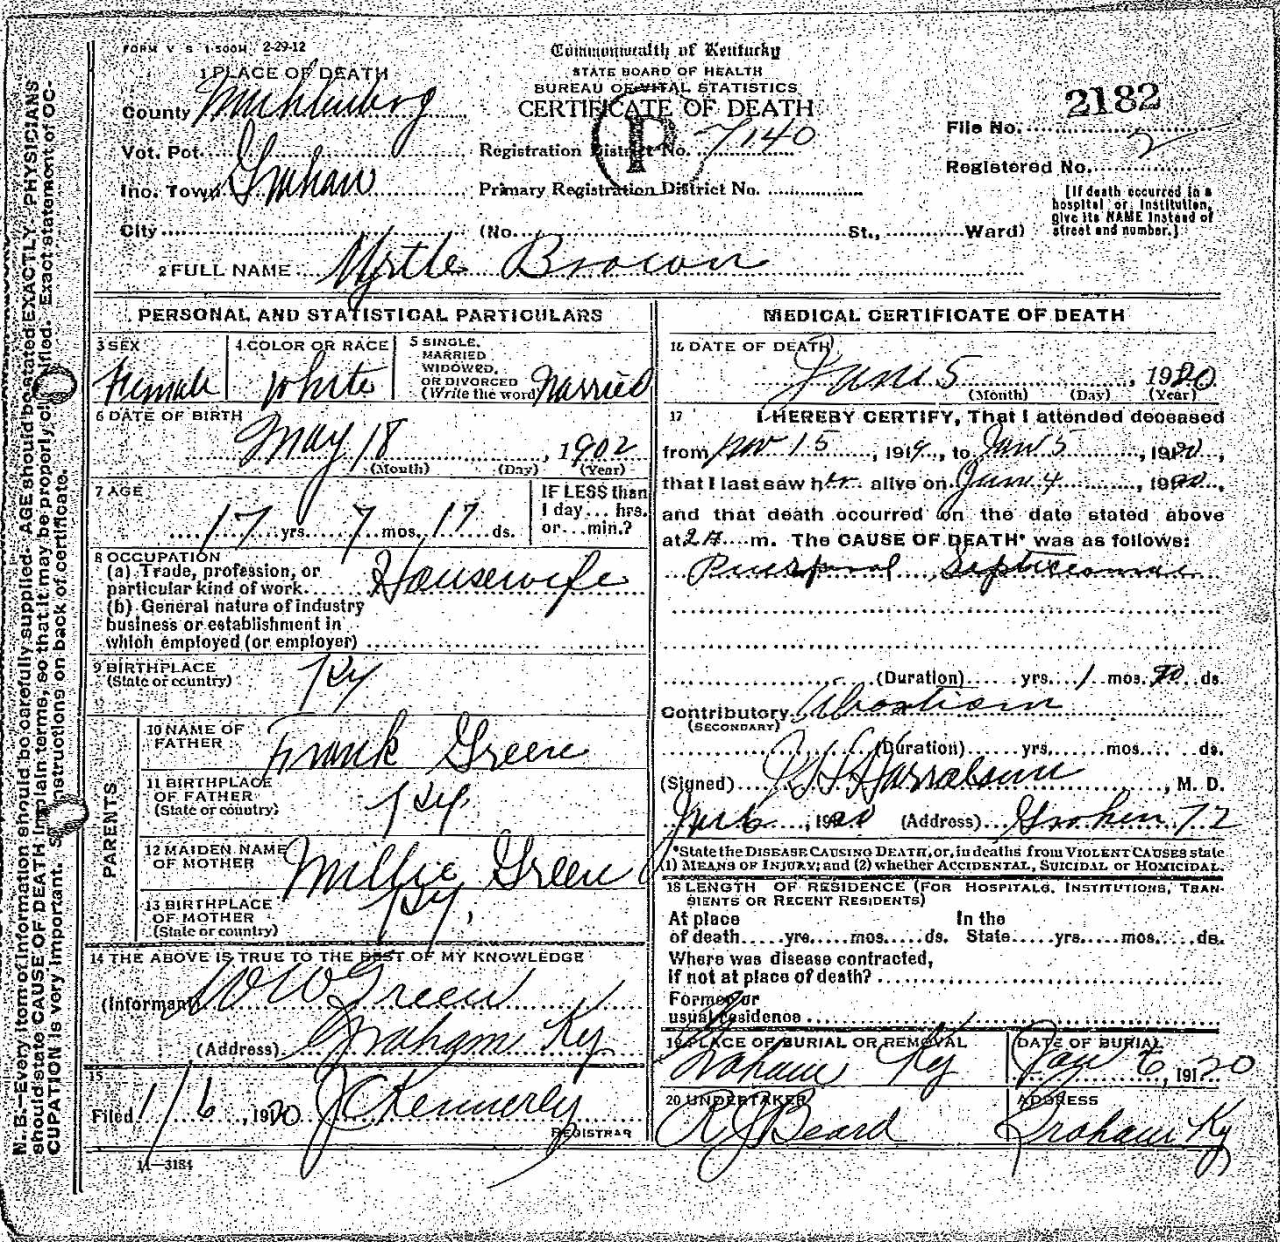 FORM V S 1-500M 2-29-12
Commonwealth of Kentucky
STATE BOARD OF HEALTH
BUREAU OF VITAL STATISTICS
CERTIFICATE OF DEATH
P
2182
File No.
Registered No. 2
[If death occurred in a
hospital or institution,
give its NAME instead of
street and number.]
1 PLACE OF DEATH
County Muhlenberg
Vot. Pct.
Registration District No. 7140
Inc. Town Graham
Primary Registration District No.
City (No. St., Ward)
2 FULL NAME Myrtle Brown
PERSONAL AND STATISTICAL PARTICULARS
3 SEX
Female
4 COLOR OR RACE
White
5 SINGLE,
MARRIED
WIDOWED,
OR DIVORCED
(Write the word) Married
6 DATE OF BIRTH
May 18, 1902
(Month) (Day) (Year)
7 AGE
17 yrs. 7 mos. 17 ds.
IF LESS than
1 day... hrs.
or...min.?
8 OCCUPATION
(a) Trade, profession, or
particular kind of work Housewife
(b) General nature of industry
business or establishment in
which employed (or employer)
9 BIRTHPLACE
(State or country) Ky
PARENTS
10 NAME OF
FATHER Frank Green
11 BIRTHPLACE
OF FATHER
(State or country) Ky.
12 MAIDEN NAME
OF MOTHER Millie Green
13 BIRTHPLACE
OF MOTHER
(State or country) Ky.
14 THE ABOVE IS TRUE TO THE BEST OF MY KNOWLEDGE
(Informant) W W Green
(Address) Graham Ky
15
Filed 1/6, 1920 J C Kennerly
REGISTRAR
11—3184
MEDICAL CERTIFICATE OF DEATH
16 DATE OF DEATH
Jan 5, 1920
(Month) (Day) (Year)
17 I HEREBY CERTIFY, That I attended deceased
from Nov 15, 1919, to Jan 5, 1920,
that I last saw her alive on Jan 4, 1920,
and that death occurred on the date stated above
at 2 A m. The CAUSE OF DEATH* was as follows:
Puerperal Septicemia
(Duration) yrs. 1 mos. 20 ds.
Contributory Abortion
(SECONDARY)
(Duration) yrs. mos. ds.
(Signed) Harralson, M. D.
Jan 6, 1920 (Address) Graham
*State the DISEASE CAUSING DEATH, or, in deaths from VIOLENT CAUSES state
(1) MEANS OF INJURY; and (2) whether ACCIDENTAL, SUICIDAL or HOMICIDAL.
18 LENGTH OF RESIDENCE (FOR HOSPITALS, INSTITUTIONS, TRAN-
SIENTS OR RECENT RESIDENTS)
At place In the
of death yrs. mos. ds. State yrs. mos. ds.
Where was disease contracted,
if not at place of death?
Former or
usual residence
19 PLACE OF BURIAL OR REMOVAL
Graham Ky
DATE OF BURIAL
Jan 6, 1920
20 UNDERTAKER
R J Beard
ADDRESS
Graham Ky
N. B.—Every item of information should be carefully supplied. AGE should be stated EXACTLY. PHYSICIANS
should state CAUSE OF DEATH in plain terms, so that it may be properly classified. Exact statement of OC-
CUPATION is very important. See instructions on back of certificate.